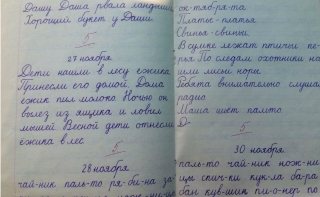 Дашу Даша рвала ландыши
Хороший букет у Даши.
5
27 ноября
Дети нашли в лесу ежика
Принесли его домой. Дома
ежик пил молоко Ночью он
вылез из ящика и ловил
мышей Весной дети отнесли
ежика в лес
5
28 ноября
чай-ник паль-то ря-би-на за-
ок-тяб-ря-та
Платье-платья
Свинья-свиньи
В сумке лежат птичьи пе-
рья По следам охотники на-
шли лисьи норы
Ребята внимательно слушают
радио
Маша шьет пальто
5
30 ноября
паль-то чай-ник нож-ни-
цы спич-ки кук-ла ба-ра-
бан кув-шин пи-о-нер по